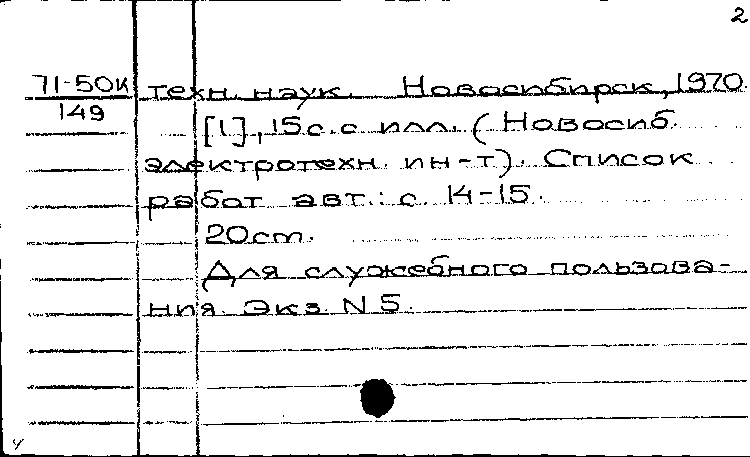 2
71-50к техн. наук. Новосибирск, 1970.
149
[1], 15 с. с илл. (Новосиб.
электротехн. ин-т). Список
работ авт.: с. 14-15.
20 cm.
Для служебного пользова-
ния. Экз. N 5.